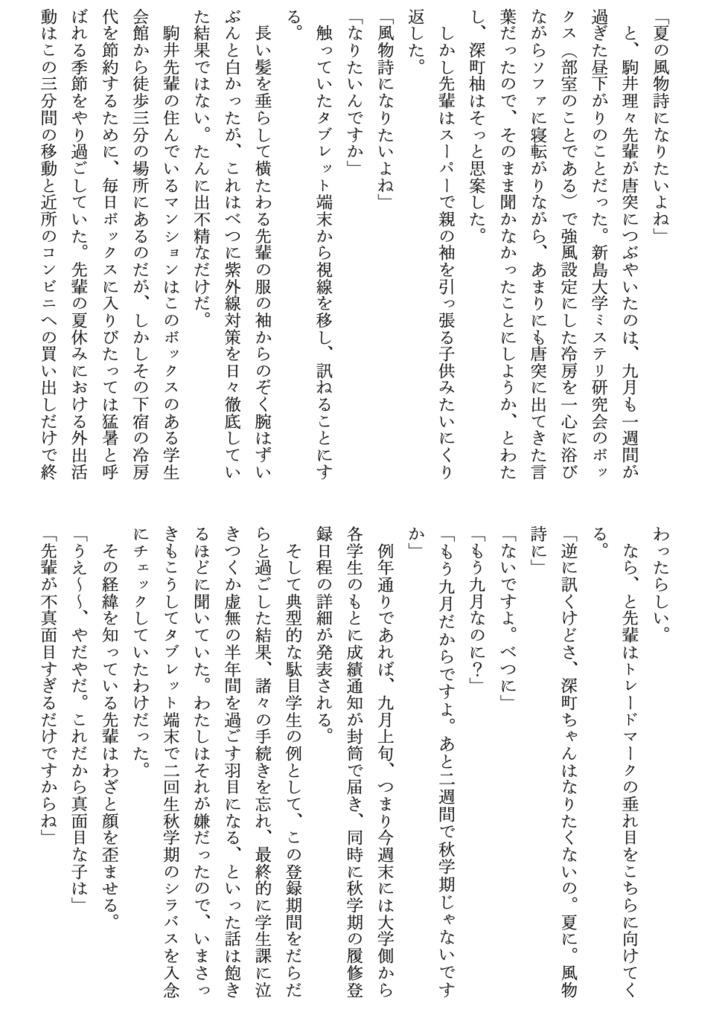 「夏の風物詩になりたいよね」
　と、駒井理々先輩が唐突につぶやいたのは、九月も一週間が
過ぎた昼下がりのことだった。新島大学ミステリ研究会のボッ
クス（部室のことである）で強風設定にした冷房を一心に浴び
ながらソファに寝転がりながら、あまりにも唐突に出てきた言
葉だったので、そのまま聞かなかったことにしようか、とわた
し、深町柚はそっと思案した。
　しかし先輩はスーパーで親の袖を引っ張る子供みたいにくり
返した。
「風物詩になりたいよね」
「なりたいんですか」
　触っていたタブレット端末から視線を移し、訊ねることにす
る。
　長い髪を垂らして横たわる先輩の服の袖からのぞく腕はずい
ぶんと白かったが、これはべつに紫外線対策を日々徹底してい
た結果ではない。たんに出不精なだけだ。
　駒井先輩の住んでいるマンションはこのボックスのある学生
会館から徒歩三分の場所にあるのだが、しかしその下宿の冷房
代を節約するために、毎日ボックスに入りびたっては猛暑と呼
ばれる季節をやり過ごしていた。先輩の夏休みにおける外出活
動はこの三分間の移動と近所のコンビニへの買い出しだけで終
わったらしい。
　なら、と先輩はトレードマークの垂れ目をこちらに向けてく
る。
「逆に訊くけどさ、深町ちゃんはなりたくないの。夏に。風物
詩に」
「ないですよ。べつに」
「もう九月なのに？」
「もう九月だからですよ。あと二週間で秋学期じゃないです
か」
　例年通りであれば、九月上旬、つまり今週末には大学側から
各学生のもとに成績通知が封筒で届き、同時に秋学期の履修登
録日程の詳細が発表される。
　そして典型的な駄目学生の例として、この登録期間をだらだ
らと過ごした結果、諸々の手続きを忘れ、最終的に学生課に泣
きつくか虚無の半年間を過ごす羽目になる、といった話は飽き
るほどに聞いていた。わたしはそれが嫌だったので、いまさっ
きもこうしてタブレット端末で二回生秋学期のシラバスを入念
にチェックしていたわけだった。
　その経緯を知っている先輩はわざと顔を歪ませる。
「うえ～～、やだやだ。これだから真面目な子は」
「先輩が不真面目すぎるだけですからね」